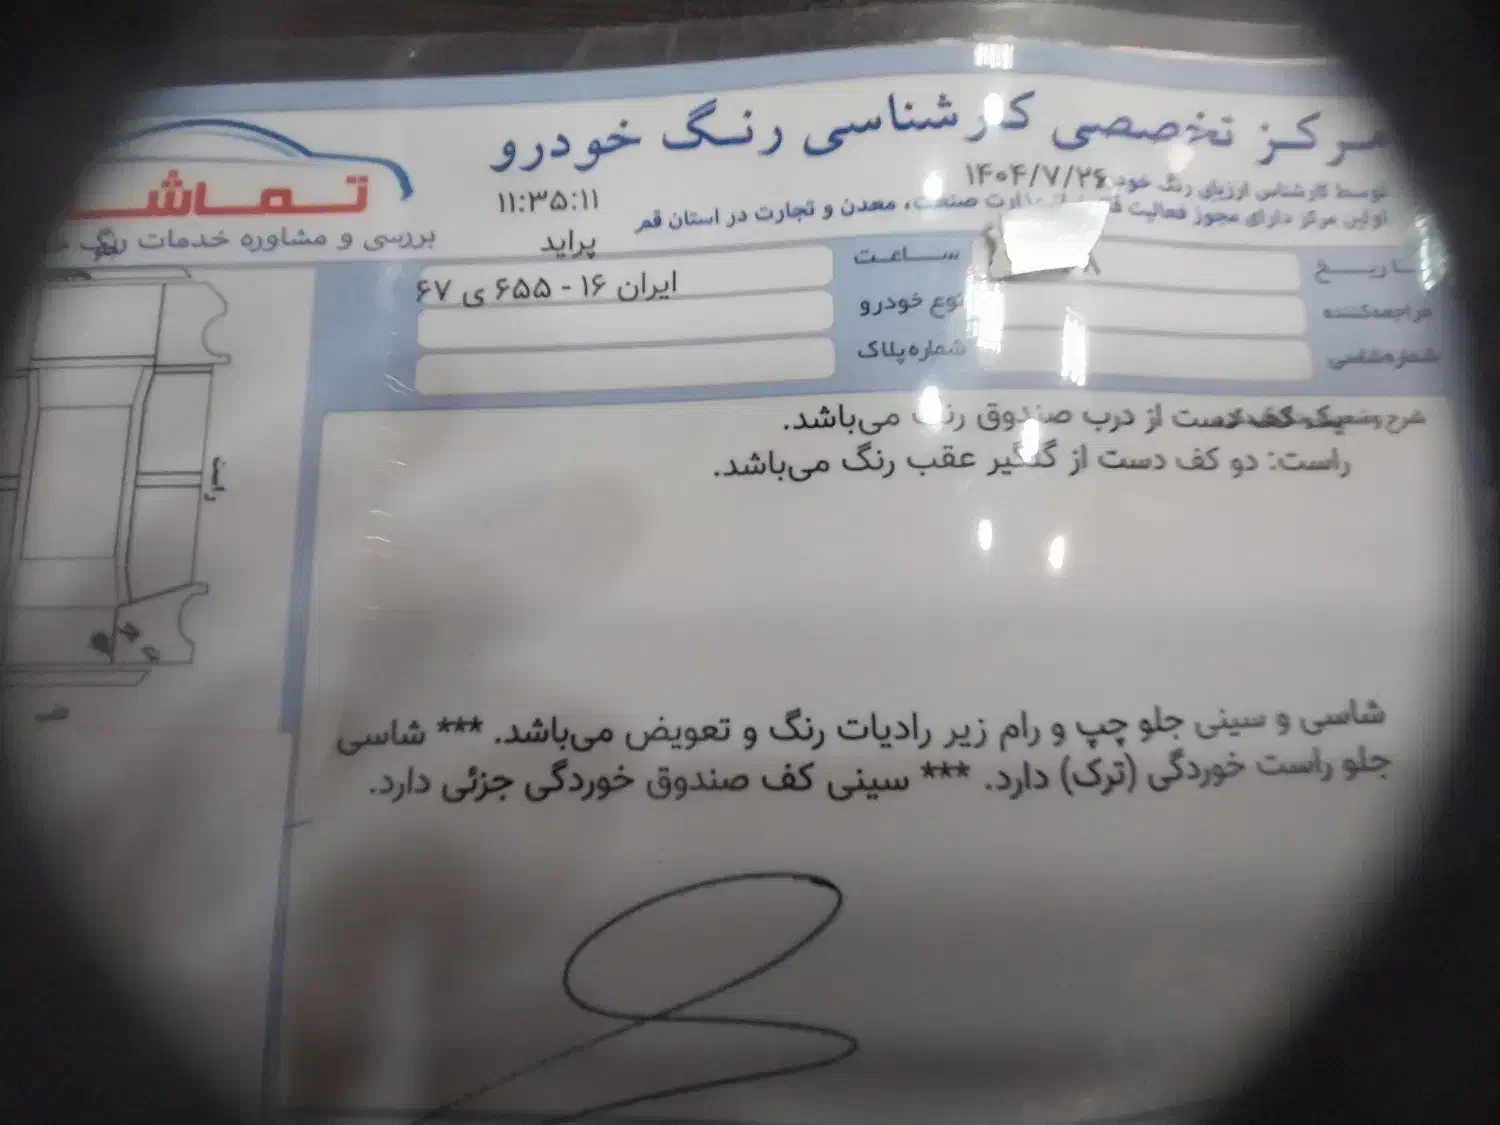 مرکز تخصصی کارشناسی رنگ خودرو
توسط کارشناس ارزیابی رنگ خودرو
۱۴۰۴/۷/۲۶
اولین مرکز دارای مجوز فعالیت وزارت صنعت، معدن و تجارت در استان قم
۱۱:۳۵:۱۱
تماشا
بررسی و مشاوره خدمات رنگ
پراید
تاریخ
ساعت
ایران ۱۶ - ۶۵۵ ی ۶۷
مراجعه‌کننده
نوع خودرو
شماره شاسی
شماره پلاک
شرح یک کف دست از درب صندوق رنگ می‌باشد.
راست: دو کف دست از گلگیر عقب رنگ می‌باشد.
شاسی و سینی جلو چپ و رام زیر رادیات رنگ و تعویض می‌باشد. *** شاسی
جلو راست خوردگی (ترک) دارد. *** سینی کف صندوق خوردگی جزئی دارد.